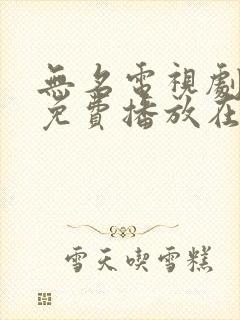 無名電視劇
免費播放在
雪天喫雪糕